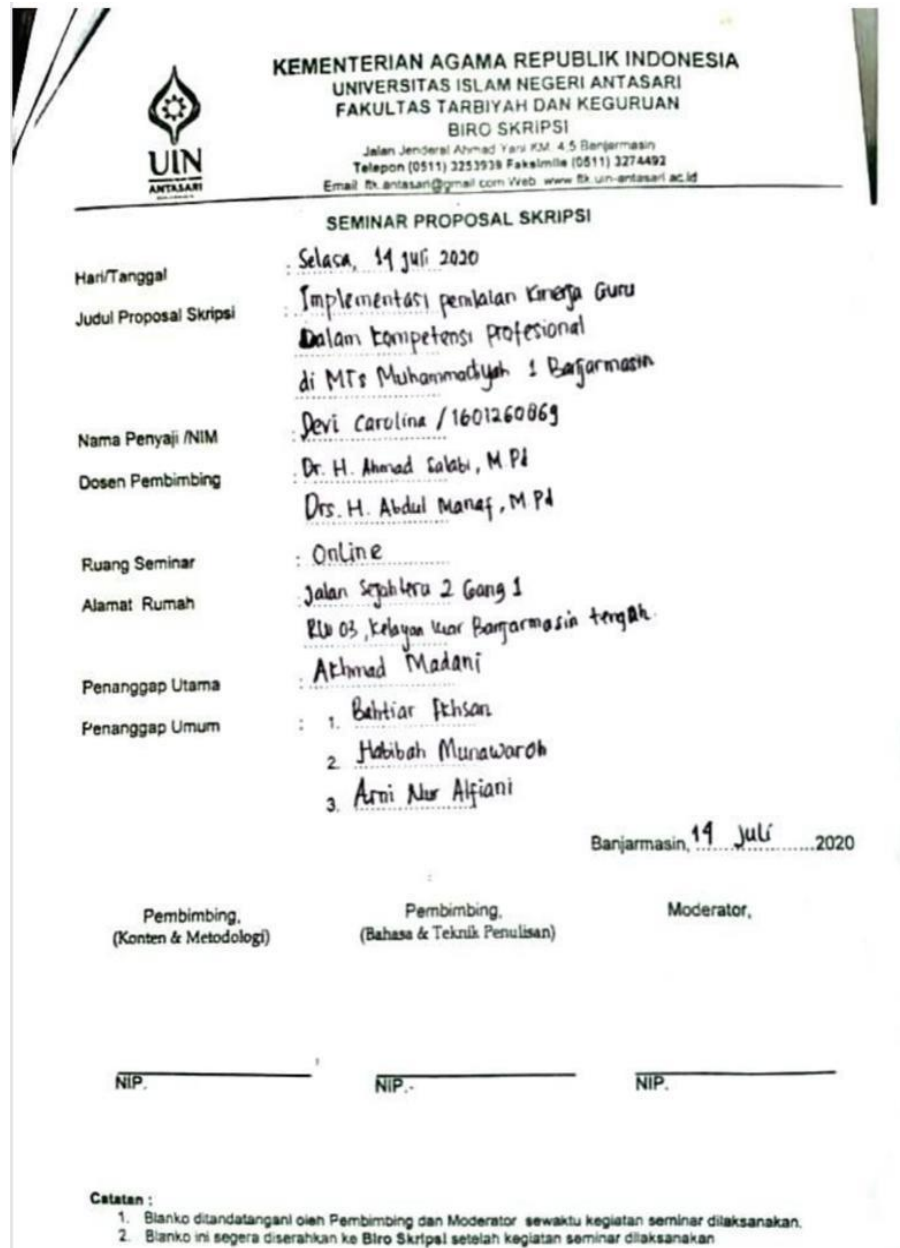 KEMENTERIAN AGAMA REPUBLIK INDONESIA
UNIVERSITAS ISLAM NEGERI ANTASARI
FAKULTAS TARBIYAH DAN KEGURUAN
BIRO SKRIPSI
Jalan Jenderal Ahmad Yani KM. 4,5 Banjarmasin
Telepon (0511) 3253939 Faksimile (0511) 3274492
Email: ftk.antasari@gmail.com Web: www.ftk.uin-antasari.ac.id
UIN
ANTASARI
SEMINAR PROPOSAL SKRIPSI
Hari/Tanggal : Selasa, 14 Juli 2020
Judul Proposal Skripsi : Implementasi penilaian Kinerja Guru
Dalam kompetensi profesional
di MTs Muhammadiyah 1 Banjarmasin
Nama Penyaji /NIM : Devi Carolina / 1601260869
Dosen Pembimbing : Dr. H. Ahmad Salabi, M.Pd
Drs. H. Abdul Manaf, M.Pd
Ruang Seminar : Online
Alamat Rumah : Jalan Sejahtera 2 Gang 1
RW 03, Kelayan luar Banjarmasin tengah.
Penanggap Utama : Akhmad Madani
Penanggap Umum : 1. Bahtiar Ikhsan
2. Habibah Munawaroh
3. Arni Nur Alfiani
Banjarmasin, 14 Juli 2020
Pembimbing, Pembimbing, Moderator,
(Konten & Metodologi) (Bahasa & Teknik Penulisan)
NIP. NIP.- NIP.
Catatan :
1. Blanko ditandatangani oleh Pembimbing dan Moderator sewaktu kegiatan seminar dilaksanakan.
2. Blanko ini segera diserahkan ke Biro Skripsi setelah kegiatan seminar dilaksanakan